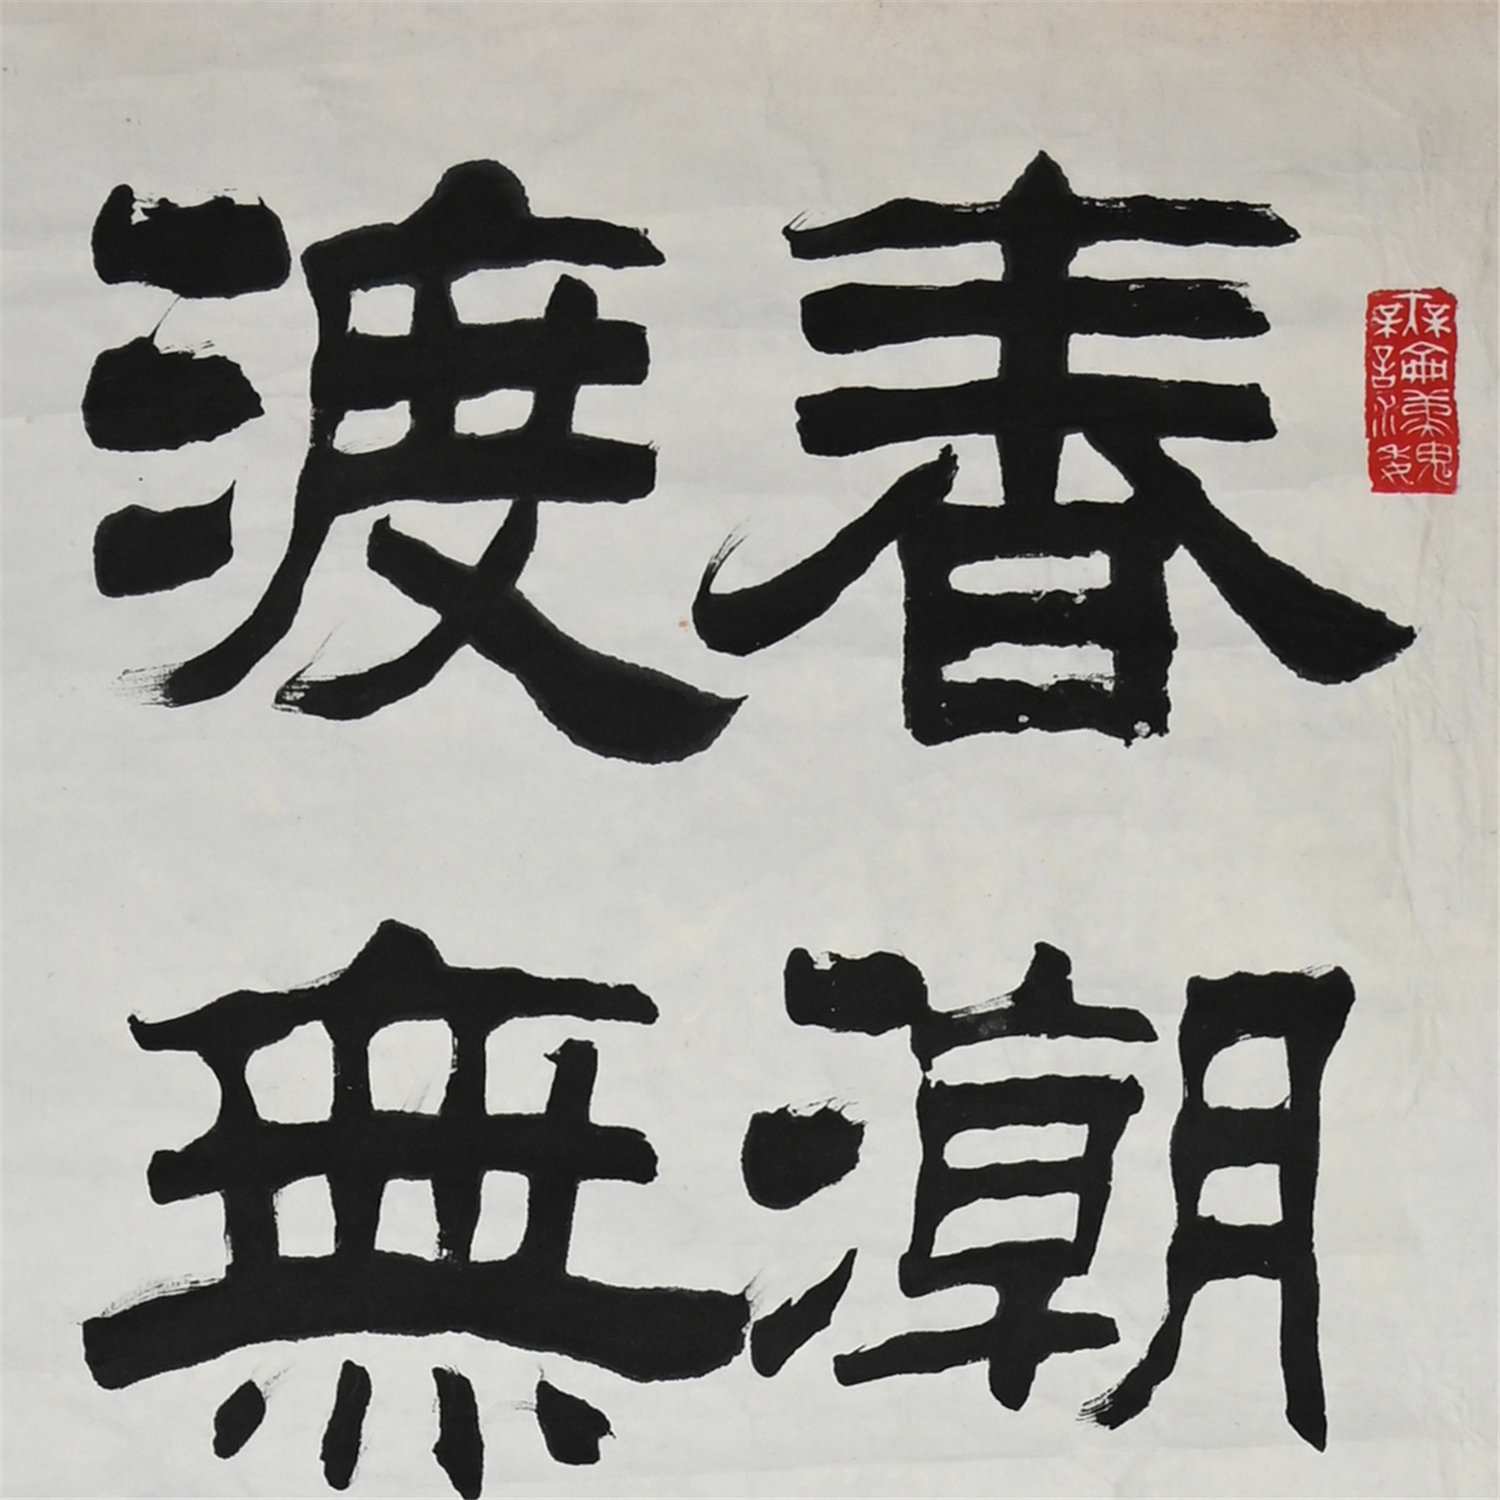 春潮
渡無